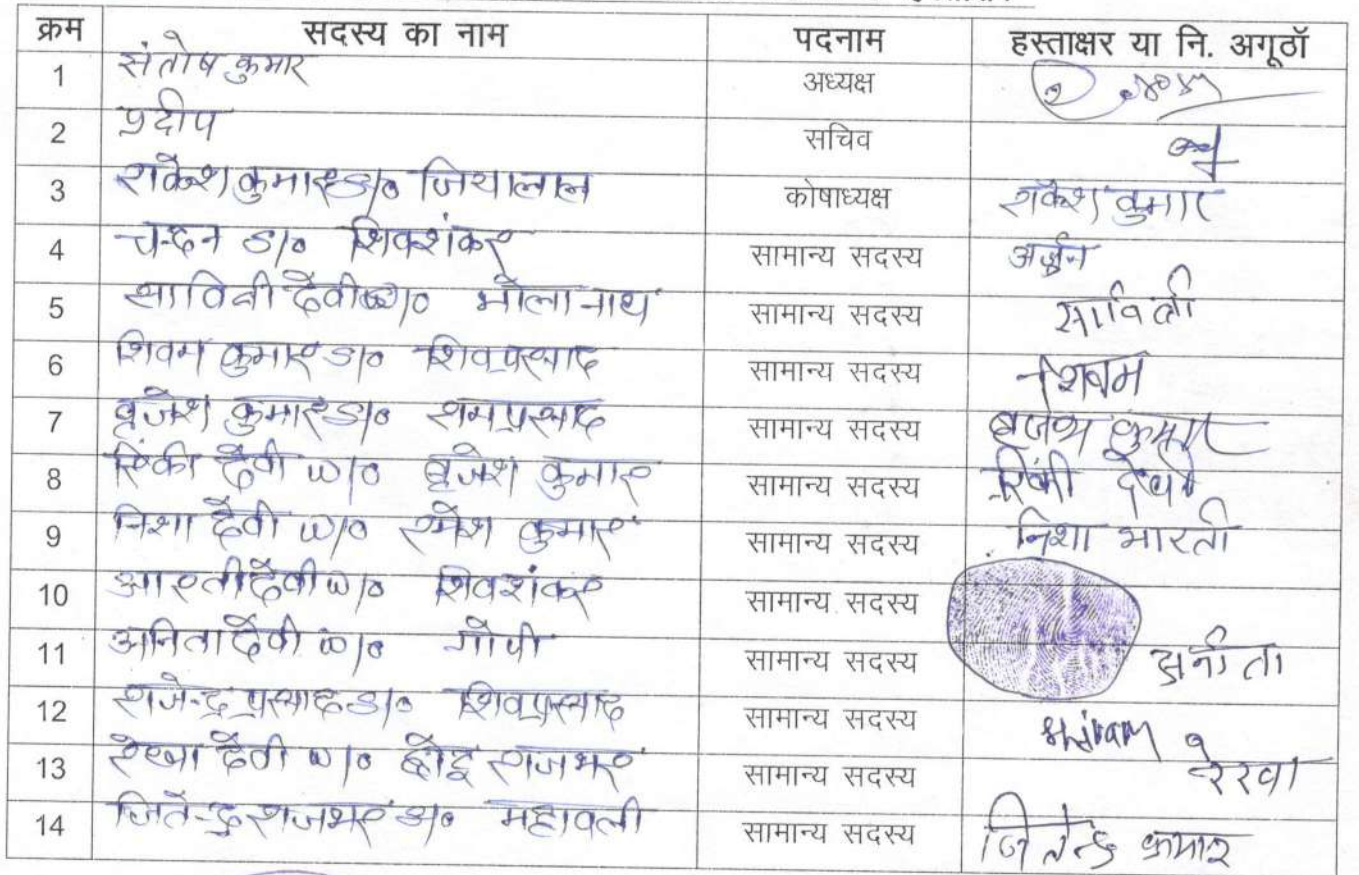 क्रम सदस्य का नाम पदनाम हस्ताक्षर या नि. अगूठॉ
1 संतोष कुमार अध्यक्ष
2 प्रदीप सचिव
3 राकेश कुमार S/o जियालाल कोषाध्यक्ष राकेश कुमार
4 चन्दन S/o शिवशंकर सामान्य सदस्य अर्जुन
5 सावित्री देवी W/o भोला नाथ सामान्य सदस्य सावित्री
6 शिवम कुमार S/o शिवप्रसाद सामान्य सदस्य शिवम
7 बृजेश कुमार S/o रामप्रसाद सामान्य सदस्य बृजेश कुमार
8 रिंकी देवी W/o बृजेश कुमार सामान्य सदस्य रिंकी देवी
9 निशा देवी W/o रमेश कुमार सामान्य सदस्य निशा भारती
10 आरती देवी W/o शिवशंकर सामान्य सदस्य
11 अनिता देवी W/o गोपी सामान्य सदस्य अनीता
12 राजेन्द्र प्रसाद S/o शिवप्रसाद सामान्य सदस्य
13 रेखा देवी W/o छोटू राजभर सामान्य सदस्य रेखा
14 जितेन्द्र राजभर S/o महाबली सामान्य सदस्य जितेन्द्र कुमार